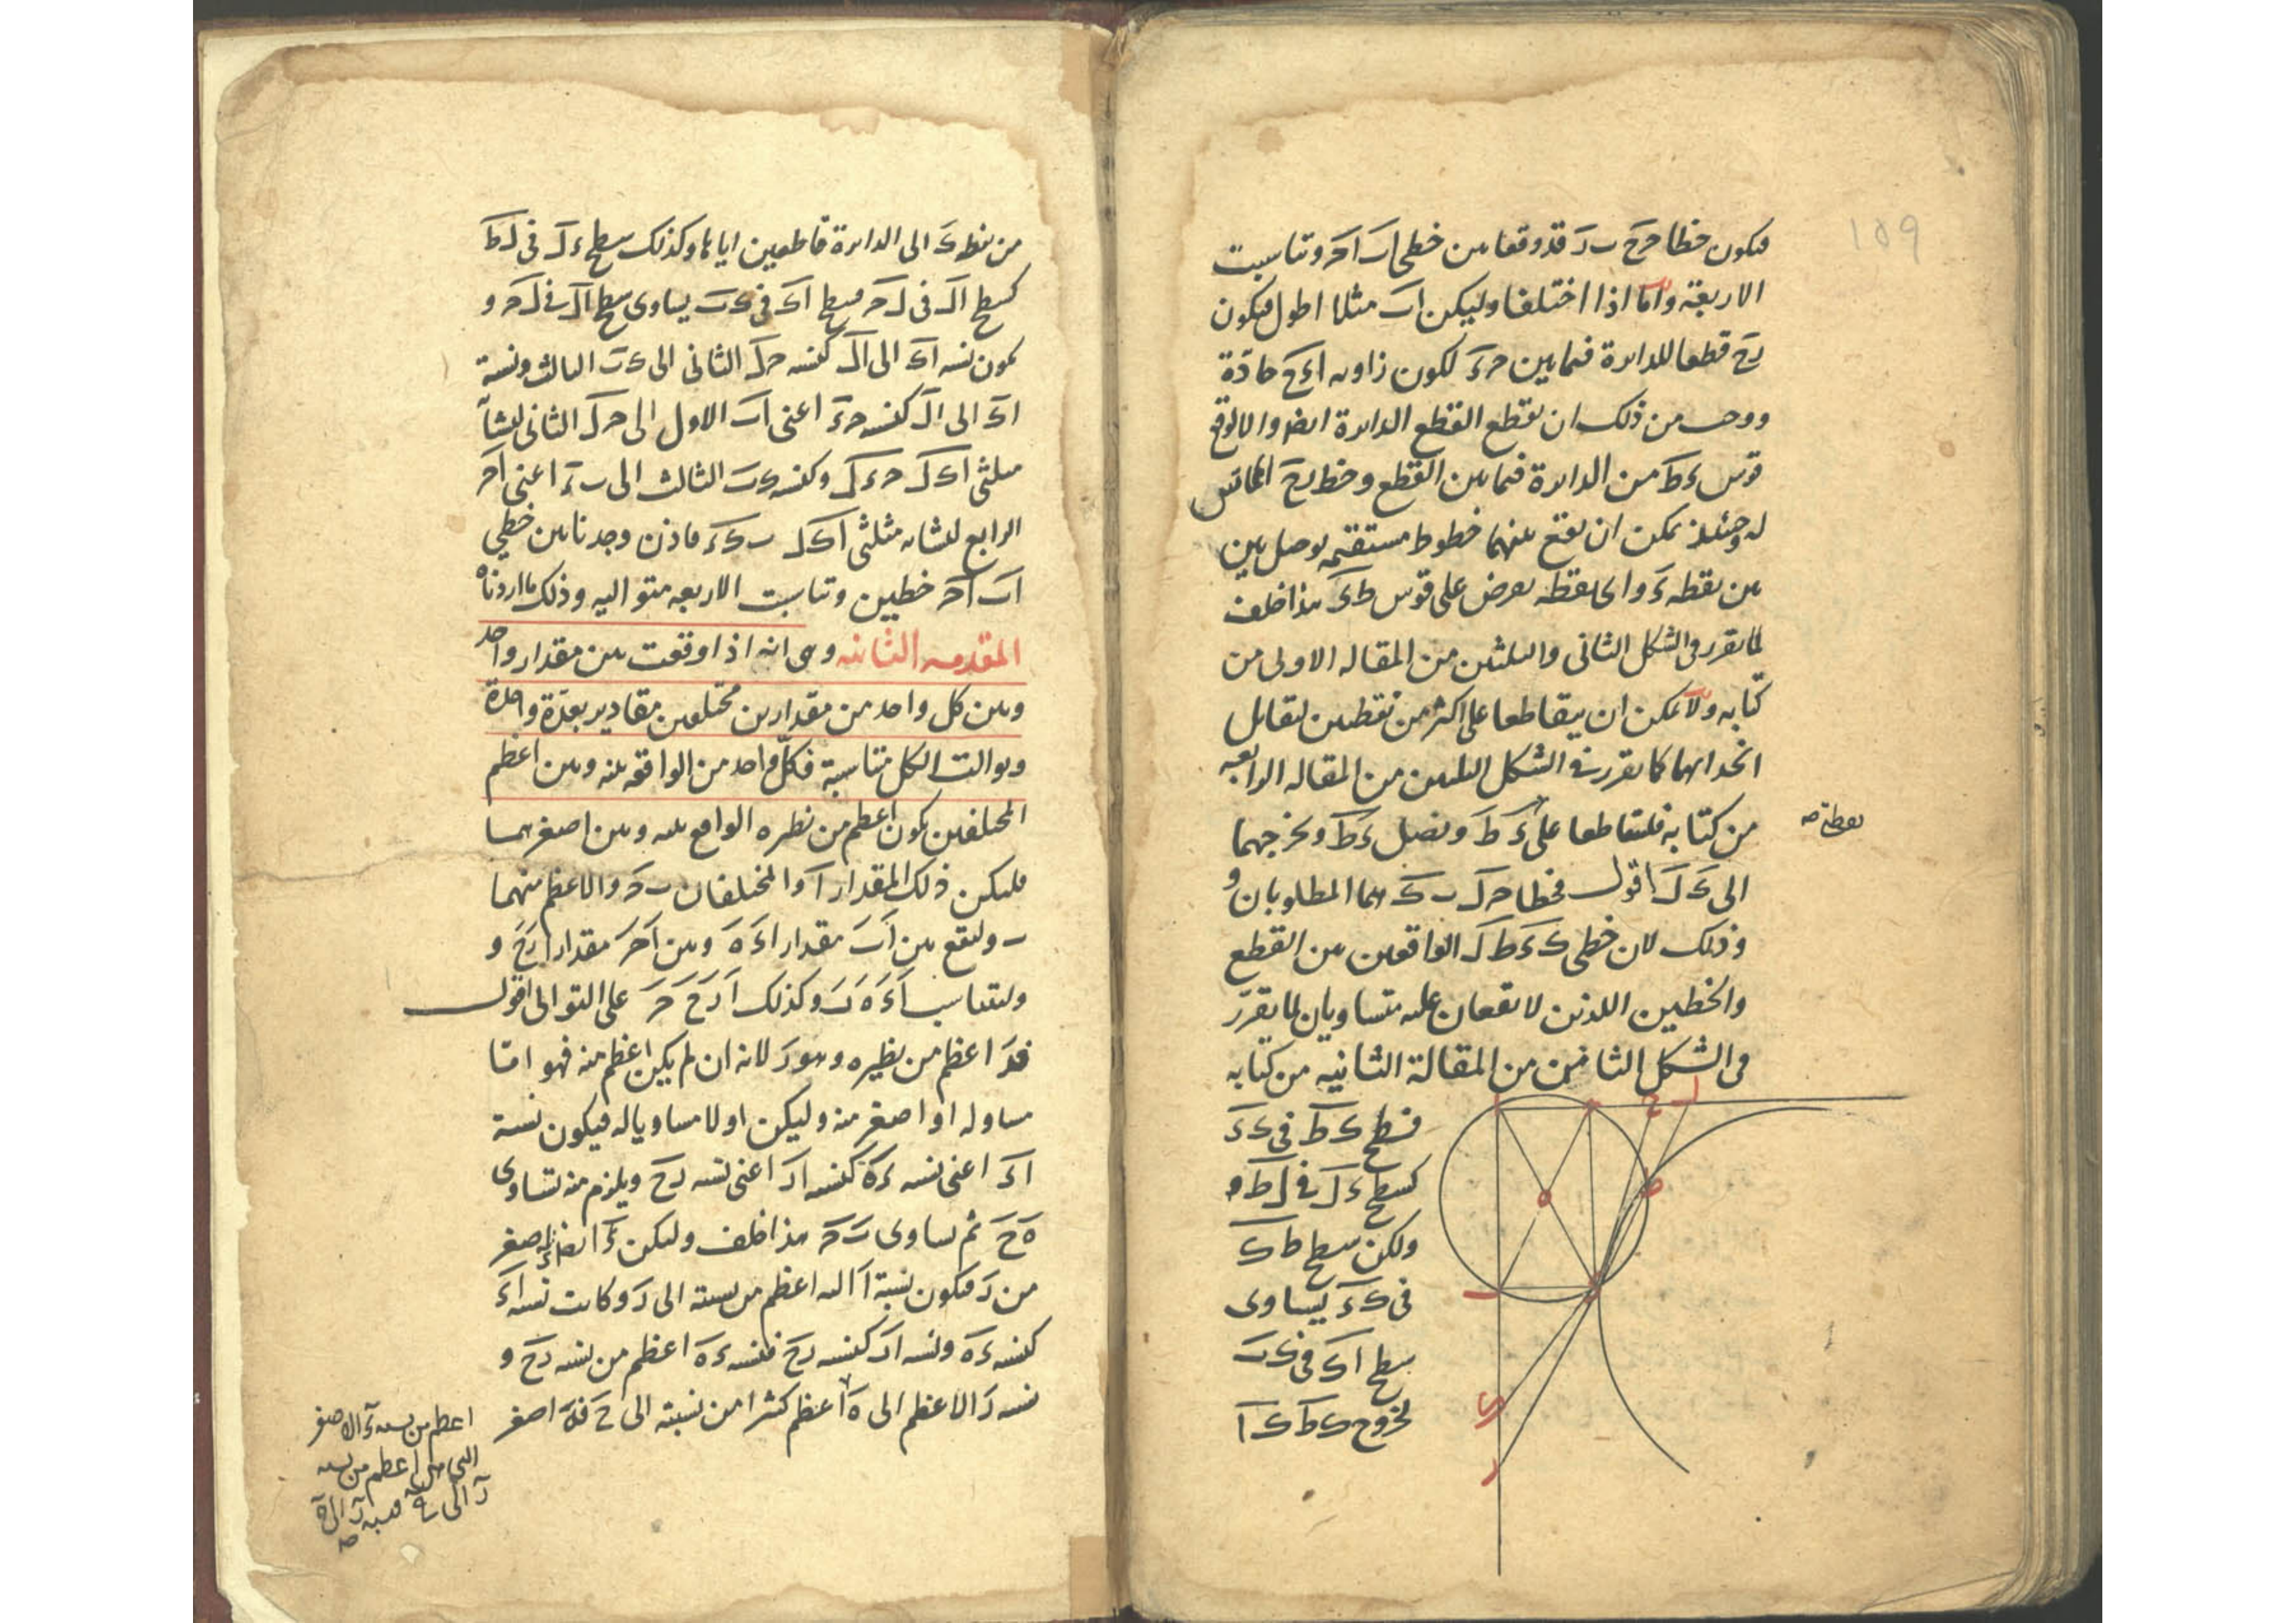 ١٥٩
فيكون خطا حرح ب د قد وقعا بين خطى اب احر وتناسبت
الاربعة واما اذا اختلفا وليكن اب مثلا اطول فيكون
رح قطعا للدائرة فيما بين حرء لكون زاوية اءح حادة
ووجب من ذلك ان يقطع القطع الدائرة ايضا والا لوقع
قوس ءط من الدائرة فيما بين القطع وخط رح المماس
له وحينئذ يمكن ان يقع بينهما خطوط مستقيمة يوصل بين
بين نقطة ء واى نقطة يعرض على قوس طء هذا خلف
لما تقرر فى الشكل الثانى والثلثين من المقالة الاولى من
كتابه ولا يمكن ان يتقاطعا على اكثر من نقطتين لتقابل
انحدابهما كما تقرر فى الشكل الثلثين من المقالة الرابعة
من كتابه فليتقاطعا على ء ط ونصل ءط ونخرجهما
نقطة صح
الى ك ل اقول فخطا حرل ب ك هما المطلوبان و
وذلك لان خطى ك ء ط ل الواقعين بين القطع
والخطين اللذين لا يقعان عليه متساويان لما تقرر
فى الشكل الثامن من المقالة الثانية من كتابه
فسطح ك ط فى ك ء
كسطح ء ل فى ل ط و
ولكن سطح ط ك
فى ك ء يساوى
سطح اك فى ك ب
لخروج ك ط ك ا
من نقطة ك الى الدائرة قاطعين اياها وكذلك سطح ء ل فى ل ط
كسطح ال فى ل حر فسطح اك فى ك ب يساوى سطح ال فى ل حر و
يكون نسبة اك الى ال كنسبة حر ل الثانى الى ك ب الثالث ونسبة
اك الى ال كنسبة حرء اعنى اب الاول الى حر ل الثانى لتشابه
مثلثى اك ل حر ء ل وكنسبة ك ب الثالث الى ب ء اعنى احر
الرابع لتشابه مثلثى اك ل ب ك ء فاذن وجدنا بين خطي
اب احر خطين وتناسبت الاربعة متوالية وذلك ما اردناه
المقدمة الثانية وهى انه اذا وقعت بين مقدار واحد
وبين كل واحد من مقدارين مختلفين مقادير بعدة واحدة
وتوالت الكل متناسبة فكل واحد من الواقعة بينه وبين اعظم
المختلفين يكون اعظم من نظيره الواقع بينه وبين اصغرهما
فليكن ذلك المقدار ا والمختلفان ب حر والاعظم منهما
ب وليقع بين ا ب مقدارا ء ه وبين ا حر مقدارا ر ح و
وليتناسب ا ء ه ب وكذلك ا ر ح حر على التوالى اقول
فء اعظم من نظيره وهو ر لانه ان لم يكن اعظم منه فهو اما
مساو له او اصغر منه وليكن اولا مساويا له فيكون نسبة
اء اعنى نسبة ءه كنسبة ار اعنى نسبة رح ويلزم منه تساوى
ه ح ثم تساوى ب حر هذا خلف وليكن ء ايضا اصغر
من ر فيكون نسبة ا اليه اعظم من نسبته الى ر وكانت نسبة اء
كنسبة ءه ونسبة ار كنسبة رح فنسبة ءه اعظم من نسبة رح و
نسبة ر الاعظم الى ه اعظم كثيرا من نسبته الى ح فه اصغر
اعظم من نسبة ء الاصغر
اعظم من نسبة